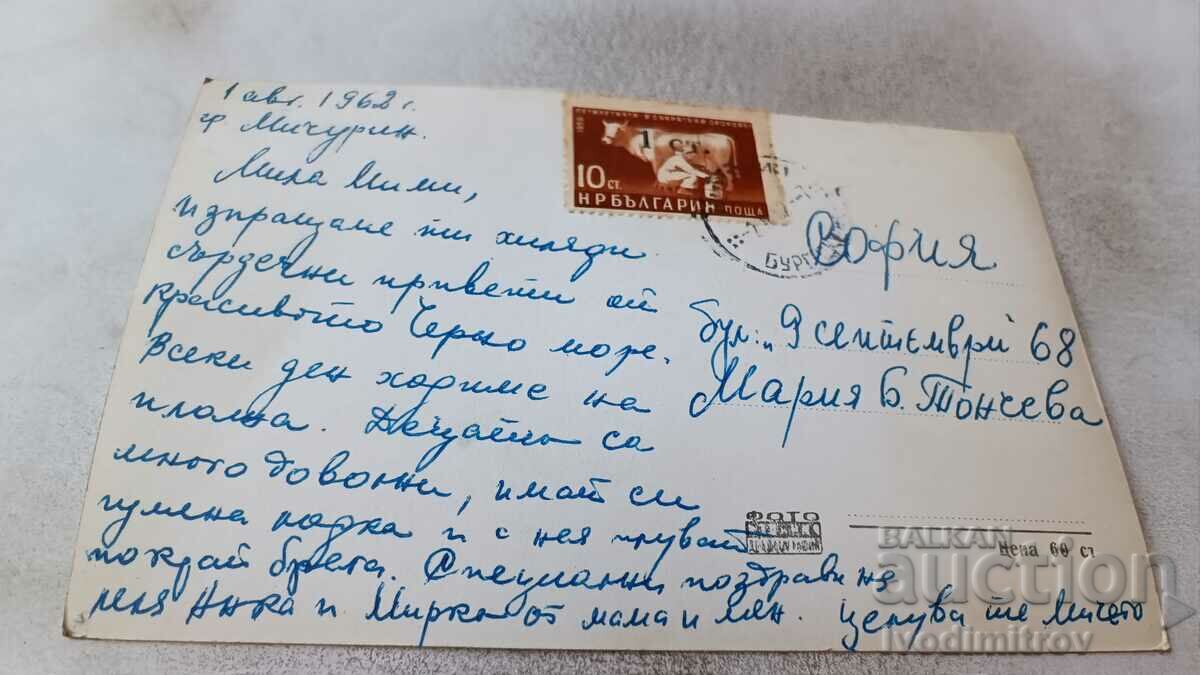 1 авг. 1962 г.
гр Мичурин.
Мила Мими,
изпращаме ти хиляди
сърдечни привети от
красивото Черно море.
Всеки ден ходиме на
плажа. Децата са
много доволни, имат си
гумена лодка и с нея плуват
покрай брега. Специални поздрави на
леля Анка и Мирко от мама и мен. Целува те Мичето
1959
1 ст.
10 СТ.
НРБЪЛГАРИЯ ПОЩА
БУРГ
София
бул: „9 септември 68
Мария Б. Тончева
ФОТО
Цена 60 ст
BALKAN
auction
Ivodimitrov